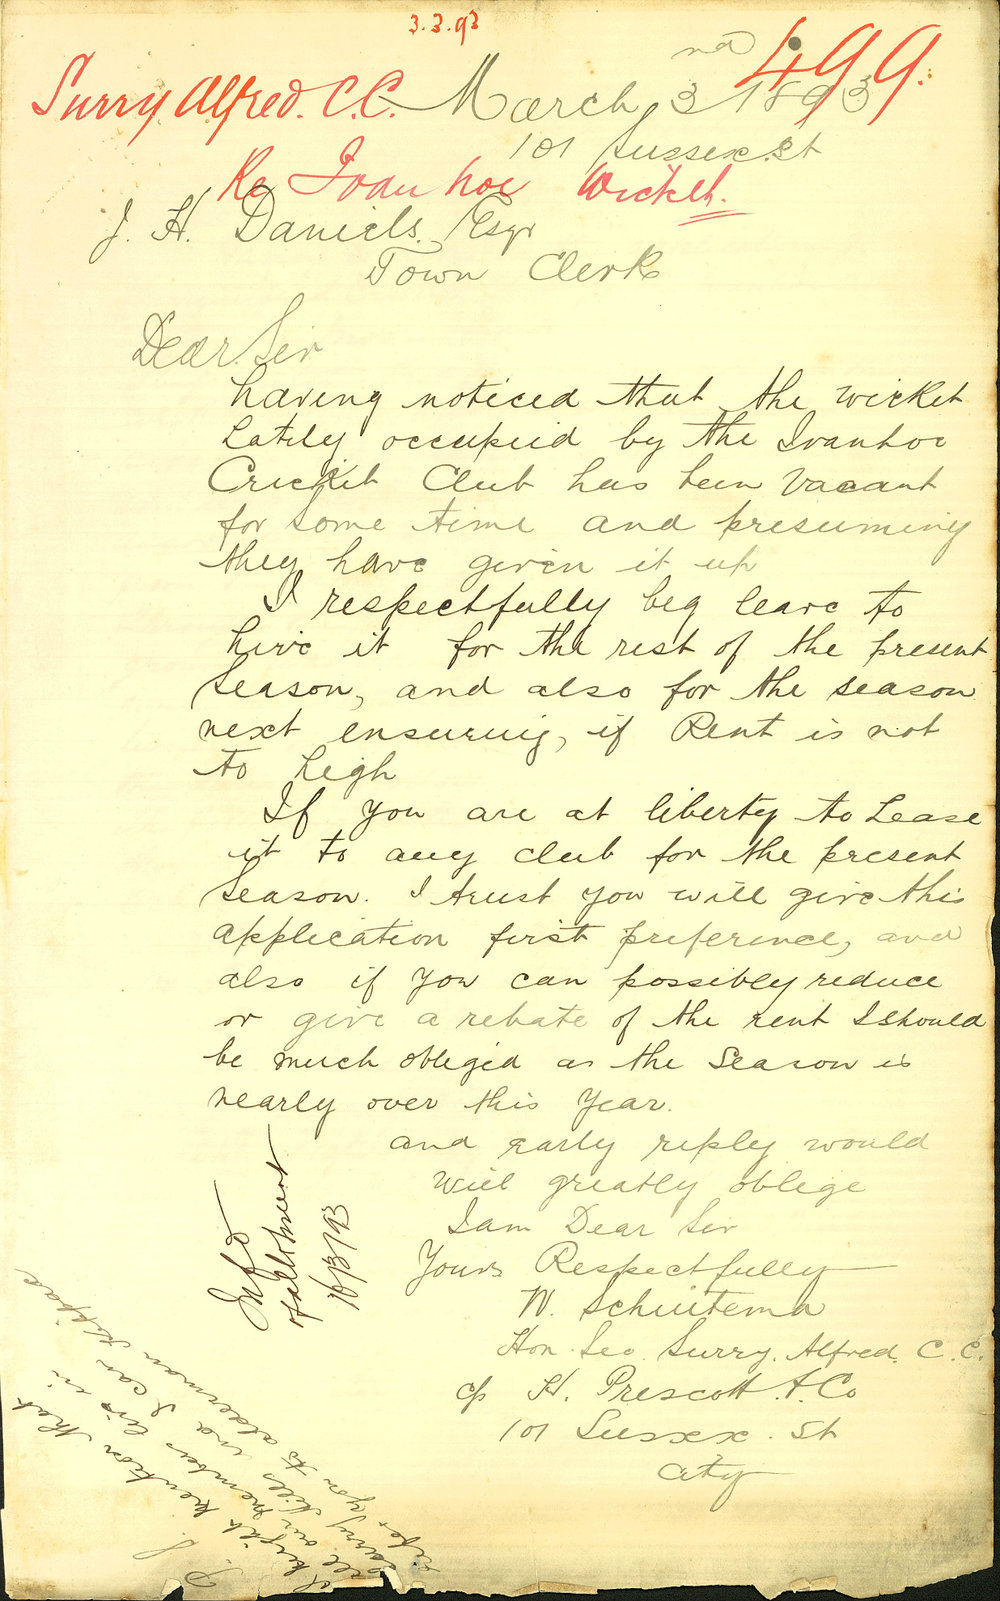 3.3.93
499.
Surry Alfred. C.C.
March 3nd 1893
101 Sussex. St
Re Ivanhoe Wicket.
J. H. Daniels. Esqr
Town Clerk
Dear Sir
having noticed that the wicket
Lately occupied by the Ivanhoe
Cricket Club has been Vacant
for some time and presuming
they have given it up
I respectfully beg leave to
hire it for the rest of the present
Season, and also for the season
next ensuring, if Rent is not
to high
If you are at liberty to Lease
it to any club for the present
Season. I trust you will give this
application first preference, and
also if you can possibly reduce
or give a rebate of the rent I should
be much obliged as the Season is
nearly over this Year.
and early reply would
will greatly oblige
I am Dear Sir
Yours Respectfully
W. Schuitema
Hon. Sec. Surry. Alfred. C. C.
c/o H. Prescott. & Co
101 Sussex. St
City
Info
of allotment
10/3/93
P. S.
I might mention that
all our members live in
Surry Hills and I can
refer you to alderman